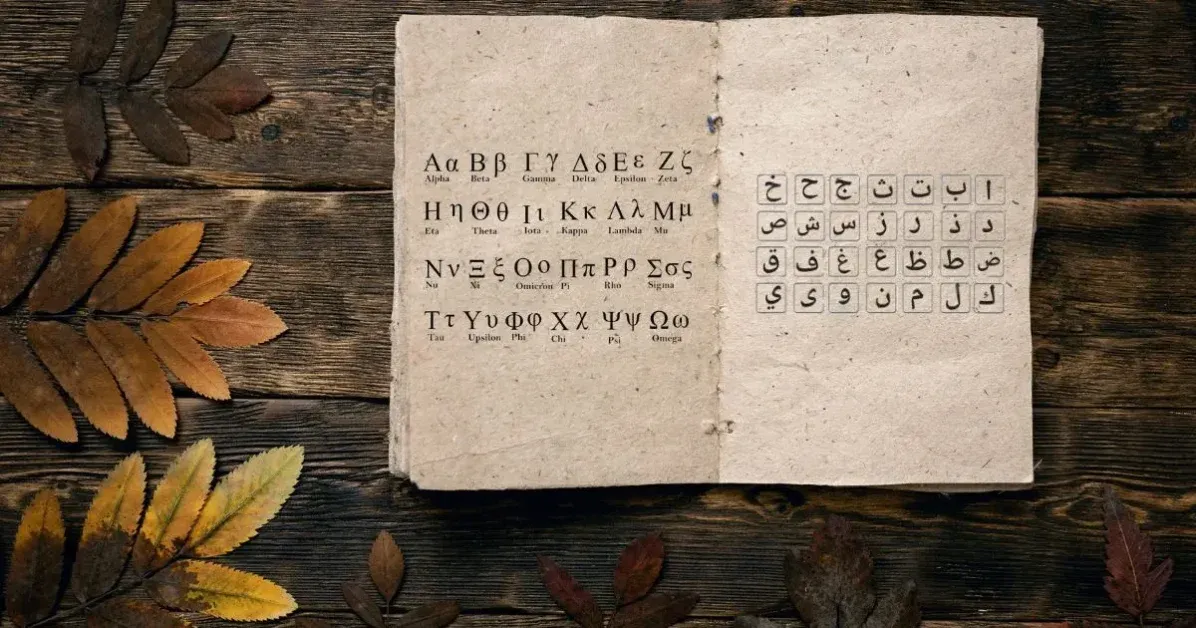 Αα Ββ Γγ Δδ Εε Ζζ
Alpha Beta Gamma Delta Epsilon Zeta
Ηη Θθ Ιι Κκ Λλ Μμ
Eta Theta Iota Kappa Lambda Mu
Νν Ξξ Οο Ππ Ρρ Σσς
Nu Xi Omicron Pi Rho Sigma
Ττ Υυ Φφ Χχ Ψψ Ωω
Tau Upsilon Phi Chi Psi Omega
ا ب ت ث ج ح خ
د ذ ر ز س ش ص
ض ط ظ ع غ ف ق
ك ل م ن و ى ي